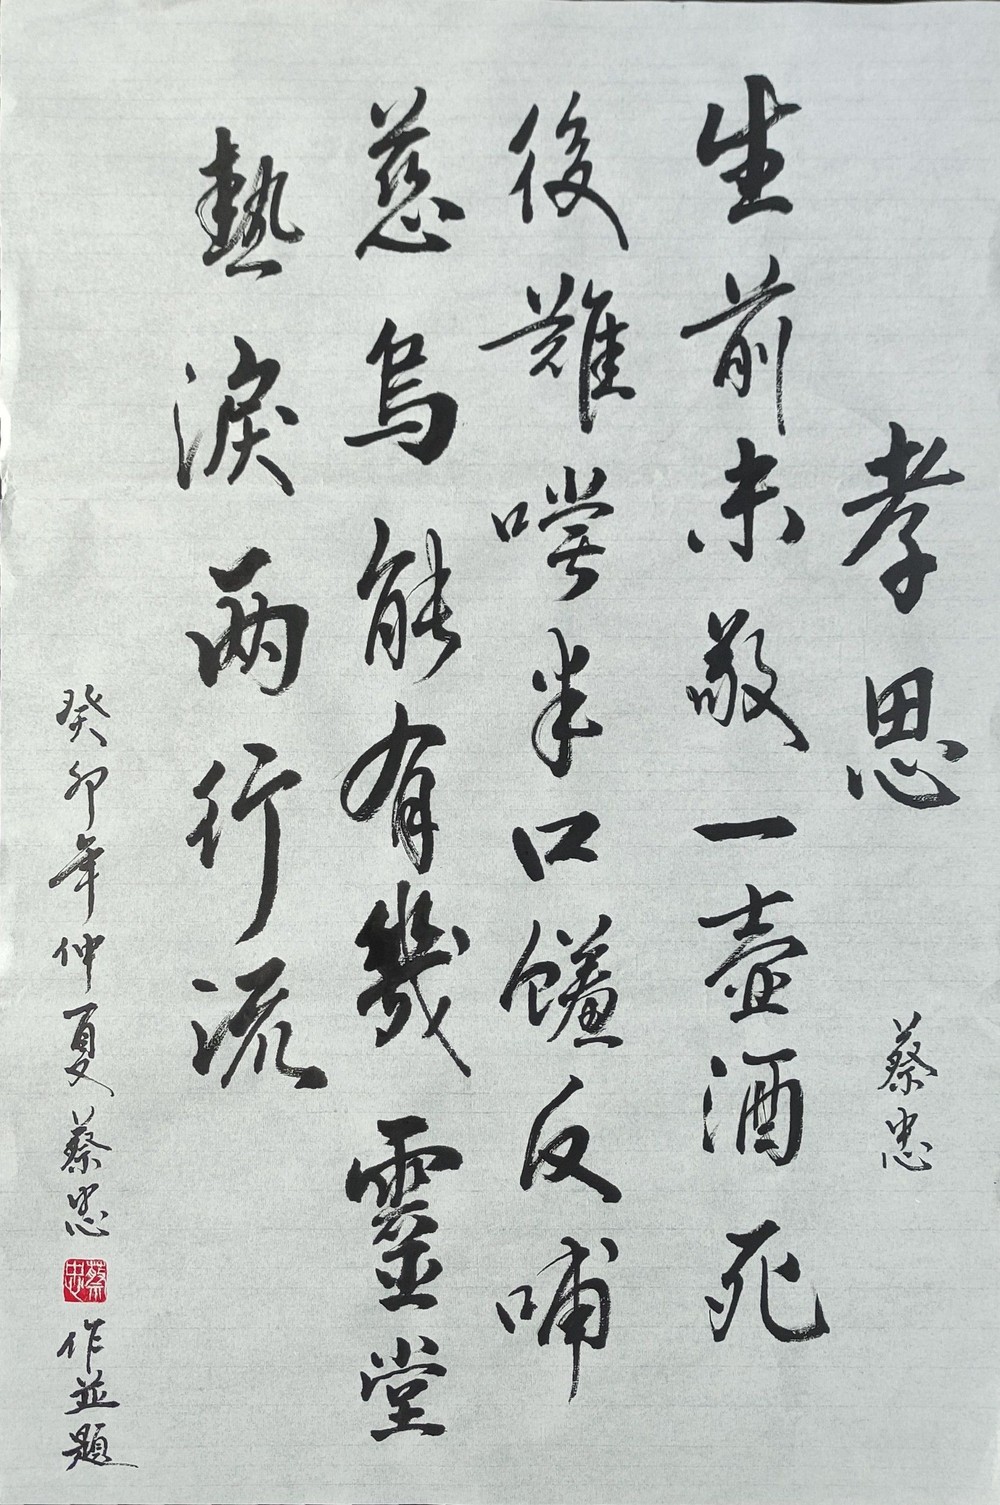 孝思
蔡忠
生前未敬一壺酒死
後難嘗半口饈反哺
慈烏能有幾靈堂
熱淚兩行流
癸卯年仲夏蔡忠
蔡忠
作並題